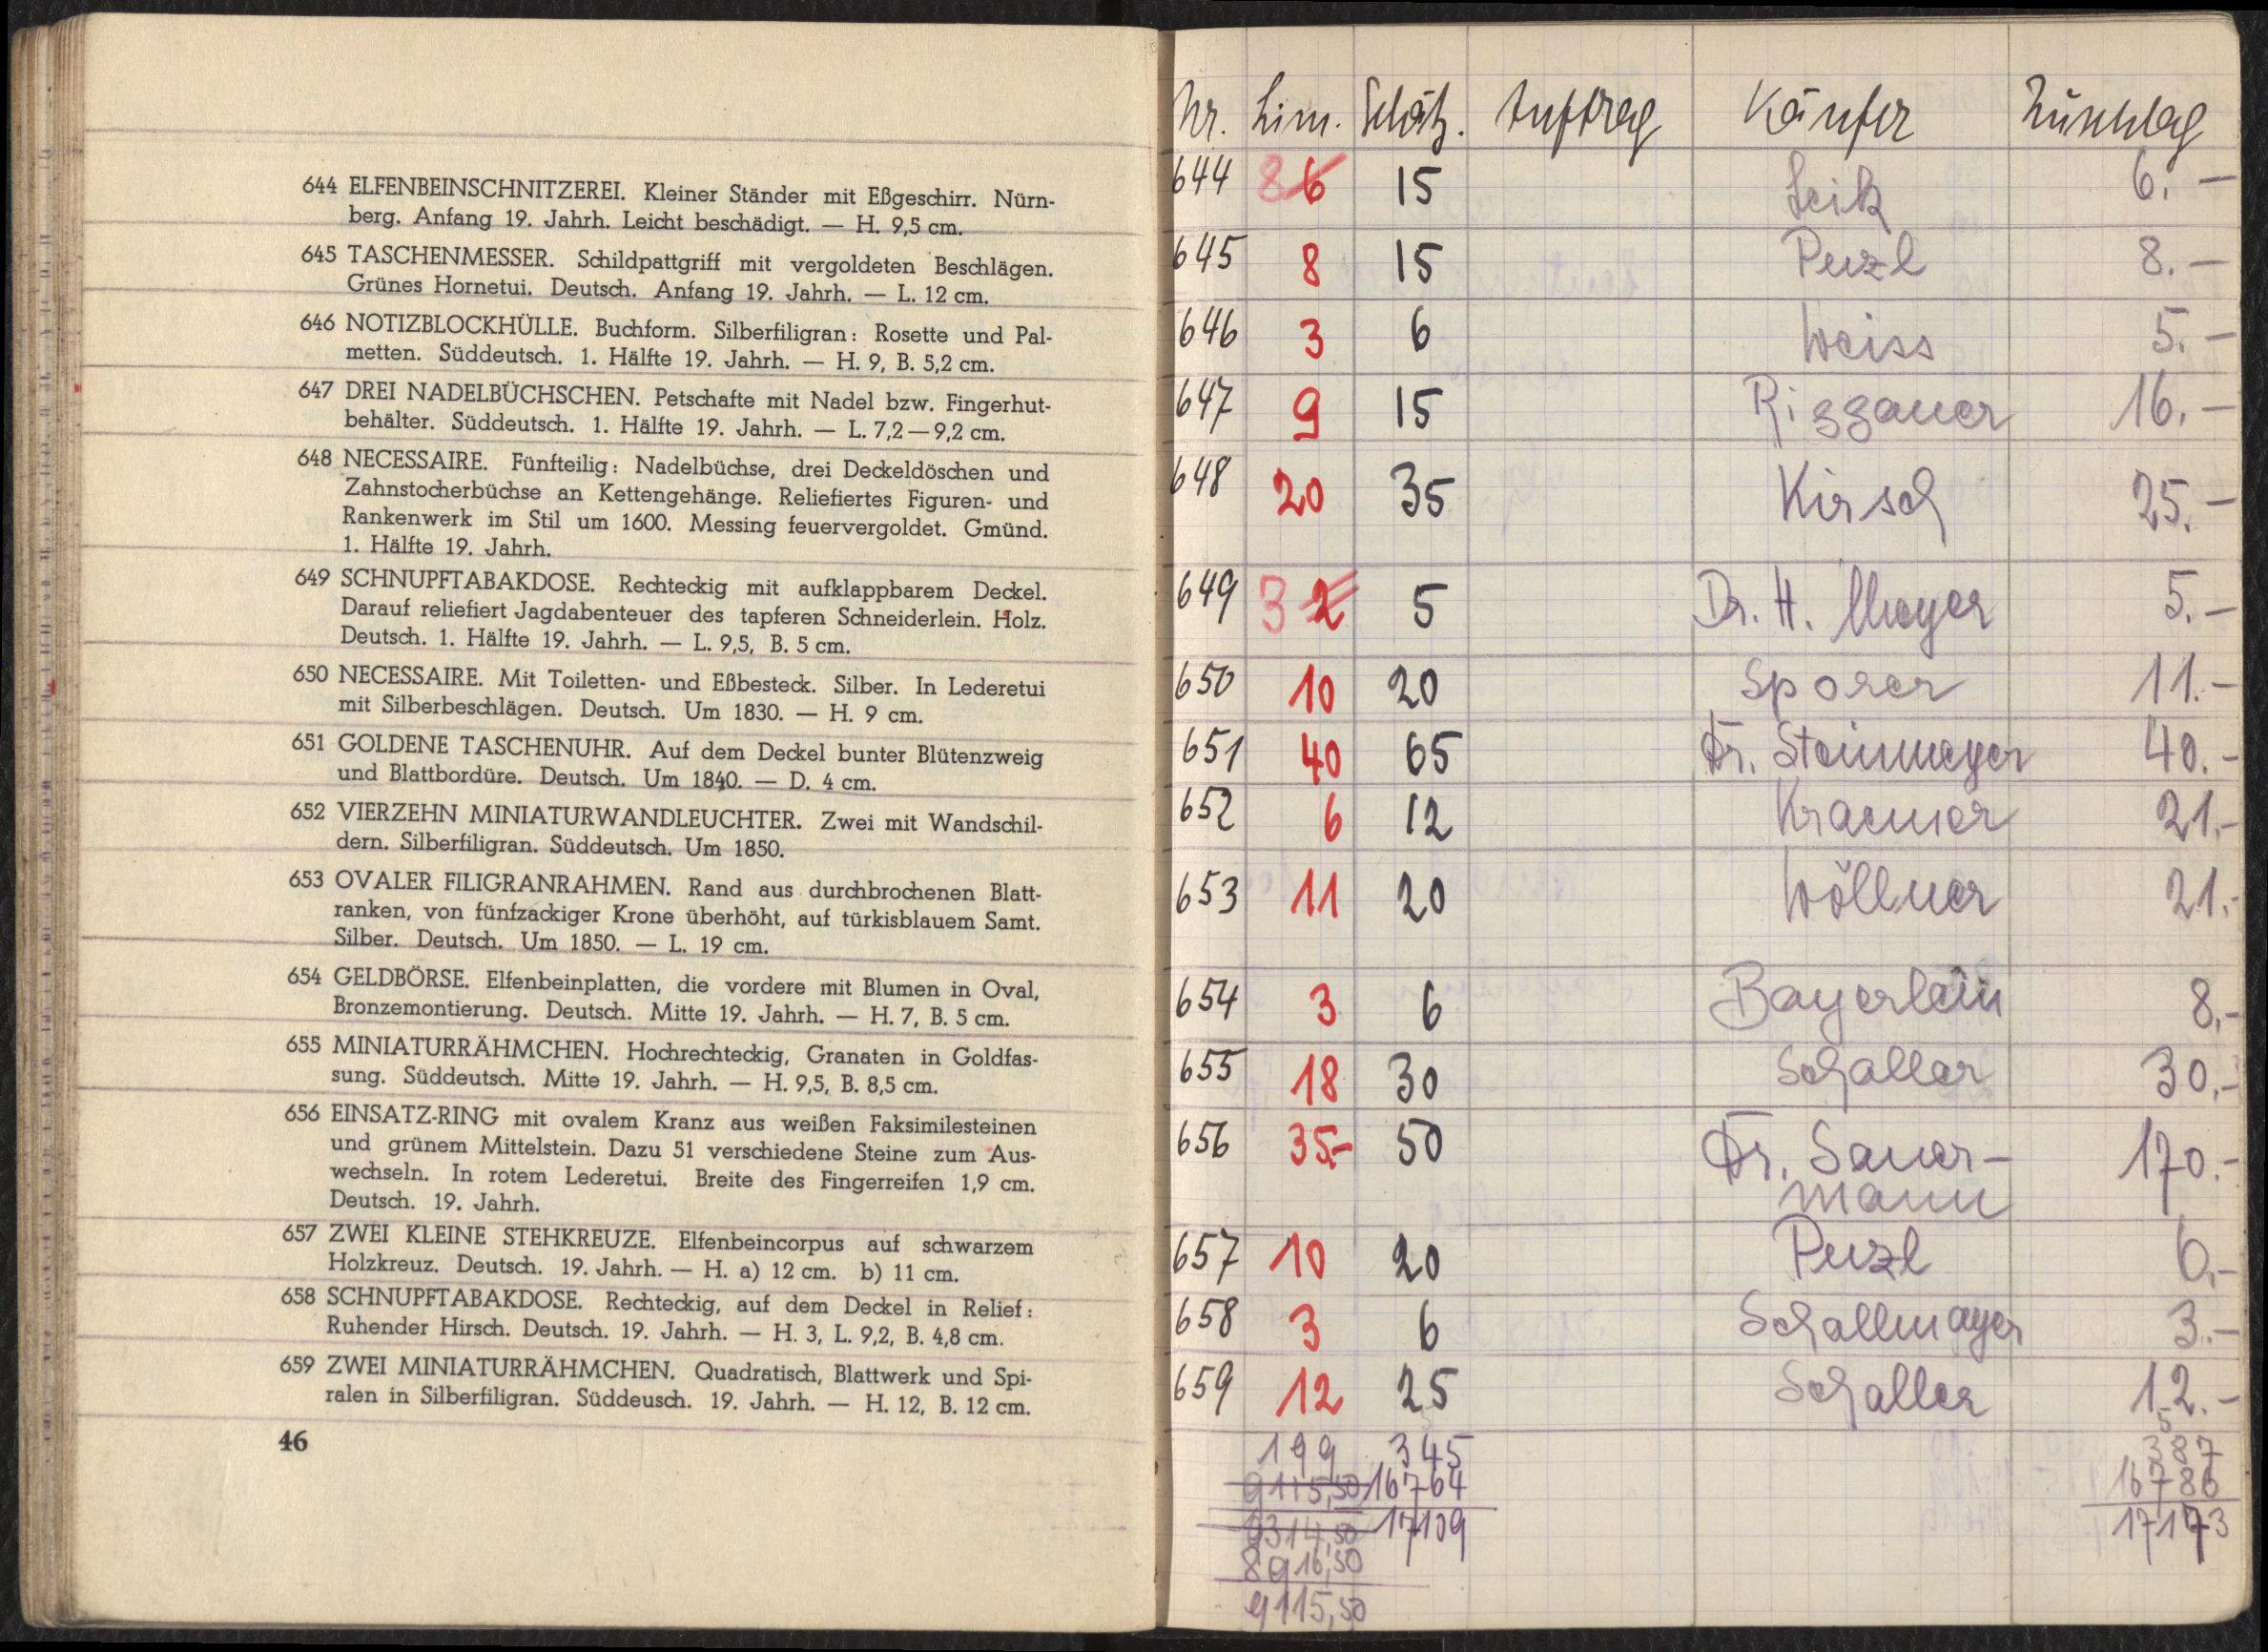 644 ELFENBEINSCHNITZEREI. Kleiner Ständer mit Eßgeschirr. Nürn-
berg. Anfang 19. Jahrh. Leicht beschädigt. — H. 9,5 cm.
645 TASCHENMESSER. Schildpattgriff mit vergoldeten Beschlägen.
Grünes Hornetui. Deutsch. Anfang 19. Jahrh. — L. 12 cm.
646 NOTIZBLOCKHÜLLE. Buchform. Silberfiligran: Rosette und Pal-
metten. Süddeutsch. 1. Hälfte 19. Jahrh. — H. 9, B. 5,2 cm.
647 DREI NADELBÜCHSCHEN. Petschafte mit Nadel bzw. Fingerhut-
behälter. Süddeutsch. 1. Hälfte 19. Jahrh. — L. 7,2—9,2 cm.
648 NECESSAIRE. Fünfteilig: Nadelbüchse, drei Deckeldöschen und
Zahnstocherbüchse an Kettengehänge. Reliefiertes Figuren- und
Rankenwerk im Stil um 1600. Messing feuervergoldet. Gmünd.
1. Hälfte 19. Jahrh.
649 SCHNUPFTABAKDOSE. Rechteckig mit aufklappbarem Deckel.
Darauf reliefiert Jagdabenteuer des tapferen Schneiderlein. Holz.
Deutsch. 1. Hälfte 19. Jahrh. — L. 9,5, B. 5 cm.
650 NECESSAIRE. Mit Toiletten- und Eßbesteck. Silber. In Lederetui
mit Silberbeschlägen. Deutsch. Um 1830. — H. 9 cm.
651 GOLDENE TASCHENUHR. Auf dem Deckel bunter Blütenzweig
und Blattbordüre. Deutsch. Um 1840. — D. 4 cm.
652 VIERZEHN MINIATURWANDLEUCHTER. Zwei mit Wandschil-
dern. Silberfiligran. Süddeutsch. Um 1850.
653 OVALER FILIGRANRAHMEN. Rand aus durchbrochenen Blatt-
ranken, von fünfzackiger Krone überhöht, auf türkisblauem Samt.
Silber. Deutsch. Um 1850. — L. 19 cm.
654 GELDBÖRSE. Elfenbeinplatten, die vordere mit Blumen in Oval,
Bronzemontierung. Deutsch. Mitte 19. Jahrh. — H. 7, B. 5 cm.
655 MINIATURRÄHMCHEN. Hochrechteckig, Granaten in Goldfas-
sung. Süddeutsch. Mitte 19. Jahrh. — H. 9,5, B. 8,5 cm.
656 EINSATZ-RING mit ovalem Kranz aus weißen Faksimilesteinen
und grünem Mittelstein. Dazu 51 verschiedene Steine zum Aus-
wechseln. In rotem Lederetui. Breite des Fingerreifen 1,9 cm.
Deutsch. 19. Jahrh.
657 ZWEI KLEINE STEHKREUZE. Elfenbeincorpus auf schwarzem
Holzkreuz. Deutsch. 19. Jahrh. — H. a) 12 cm. b) 11 cm.
658 SCHNUPFTABAKDOSE. Rechteckig, auf dem Deckel in Relief:
Ruhender Hirsch. Deutsch. 19. Jahrh. — H. 3, L. 9,2, B. 4,8 cm.
659 ZWEI MINIATURRÄHMCHEN. Quadratisch, Blattwerk und Spi-
ralen in Silberfiligran. Süddeusch. 19. Jahrh. — H. 12, B. 12 cm.
46
Nr. Lim. Schätz. Auftrag Käufer Zuschlag
644 8 6 15 Leik 6.—
645 8 15 Perzl 8.—
646 3 6 Weiss 5.—
647 9 15 Riggauer 16.—
648 20 35 Kirsch 25.—
649 3 2 5 Dr. H. Mayer 5.—
650 10 20 Sporer 11.—
651 40 65 Fr. Steinmeyer 40.-
652 6 12 Kraemer 21.-
653 11 20 Wöllner 21.-
654 3 6 Bayerlein 8,-
655 18 30 Schaller 30,-
656 35,- 50 Fr. Sauer-
mann 170.-
657 10 20 Perzl 6,-
658 3 6 Schallmayer 3.-
659 12 25 Schaller 12.-
199 345 387
9115,50 16764 16786
9314,50 17109 17173
8916,50
9115,50